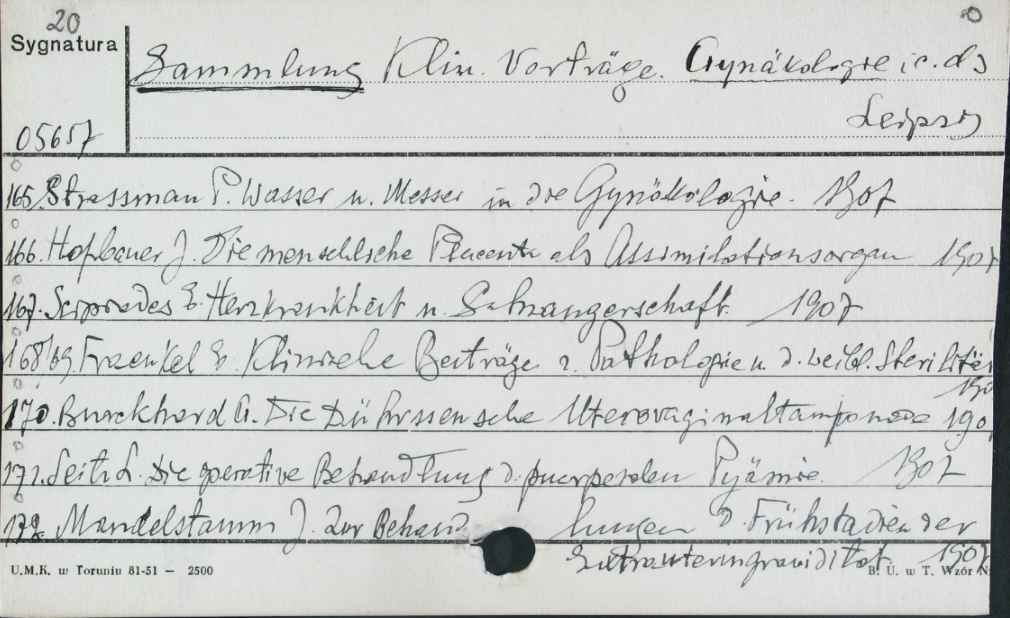 20
Sygnatura
Sammlung Klin. Vorträge. Gynäkologie
Leipzig
05657
165. Strassman P. Wasser u. Messer in die Gynäkologie. 1907
166. Hofbauer J. Die menschliche Placenta als Assimilationsorgan 1907
167. E. Herzkrankheit u. Schwangerschaft. 1907
168/69. Fraenkel E. Klinische Beiträge z. Pathologie u. d. weibl. Sterilität
190
170. Burckhard G. Die Dührssensche Uterovaginaltamponade 190
171. Seitz L. Die operative Behandlung d. puerperalen Pyämie. 1907
172. Mandelstamm J. Zur Behand lungen d. Frühstadien der
Extrauteringravidität 1907
U.M.K. w Toruniu 81-51 — 2500
B. U. w T. Wzór N